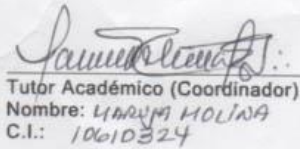 Tutor Académico (Coordinador)
Nombre: MARYM MOLINA
C.I.: 10610324